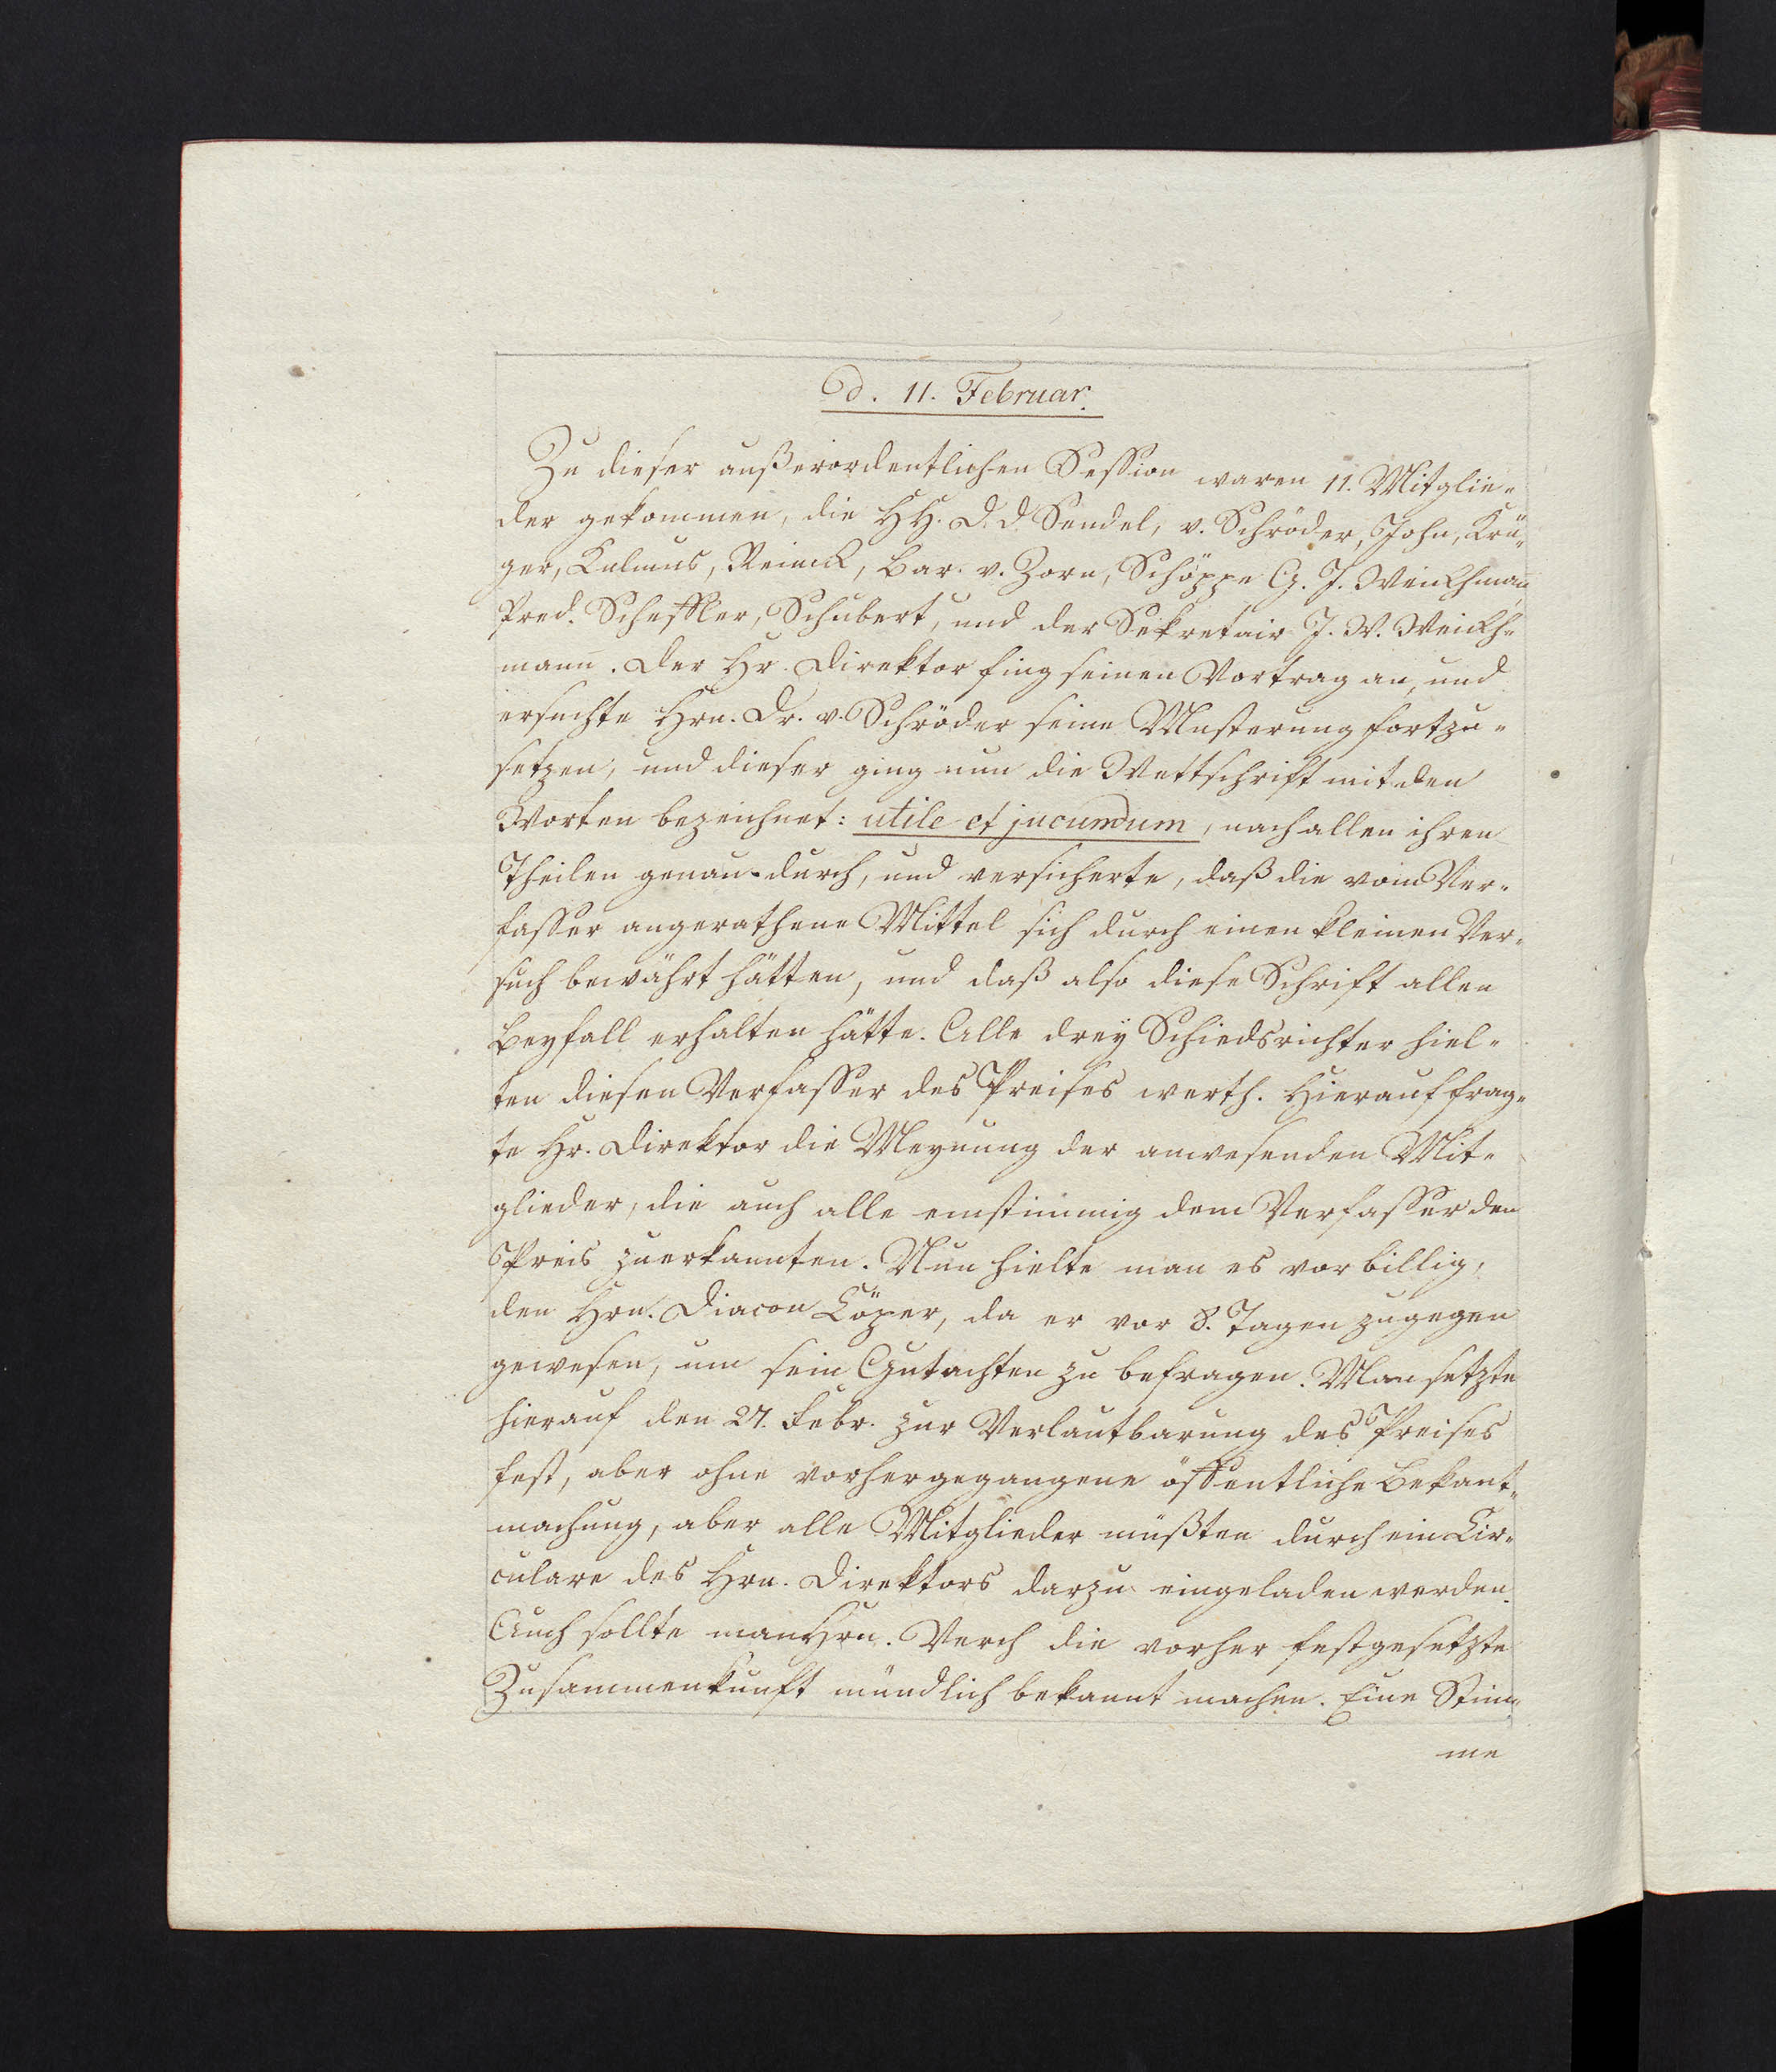 d. 11. Februar.
Zu dieser außerordentlichen Session waren 11. Mitglie-
der gekommen, die HH. D. D. Sendel, v. Schröder, John, Krü-
ger, Kulmus, Reinick, Bar. v. Zorn, Schöppe G. J. Weickhman̄
Pred. Scheffler, Schubert, und der Sekretair J. W. Weickh-
mann. Der Hr. Direktor fing seinen Vortrag an, und
ersuchte Hrn. Dr. v. Schröder seine Musterung fortzu-
setzen, und dieser ging nun die Wettschrift mit den
Worten bezeichnet: utile et jucundum, nach allen ihren
Theilen genau durch, und versicherte, daß die vom Ver-
fasser angerathene Mittel sich durch einen kleinen Ver-
such bewährt hätten, und daß also diese Schrift allen
Beyfall erhalten hätte. Alle drey Schiedsrichter hiel-
ten diesen Verfasser des Preises werth. Hierauf frag-
te Hr. Direktor die Meynung der anwesenden Mit-
glieder, die auch alle einstimmig dem Verfasser den
Preis zuerkannten. Nun hielte man es vor billig,
den Hrn. Diacon Löper, da er vor 8. Tagen zugegen
gewesen, um sein Gutachten zu befragen. Man setzte
hierauf den 27. Febr. zur Verlautbarung des Preises
fest, aber ohne vorhergegangene öffentliche Bekant-
machung, aber alle Mitglieder müßten durch ein Cir-
culare des Hrn. Direktors darzu eingeladen werden.
Auch sollte man Hrn. Verch die vorher festgesetzte
Zusammenkunft mündlich bekannt machen. Eine Stim-
me